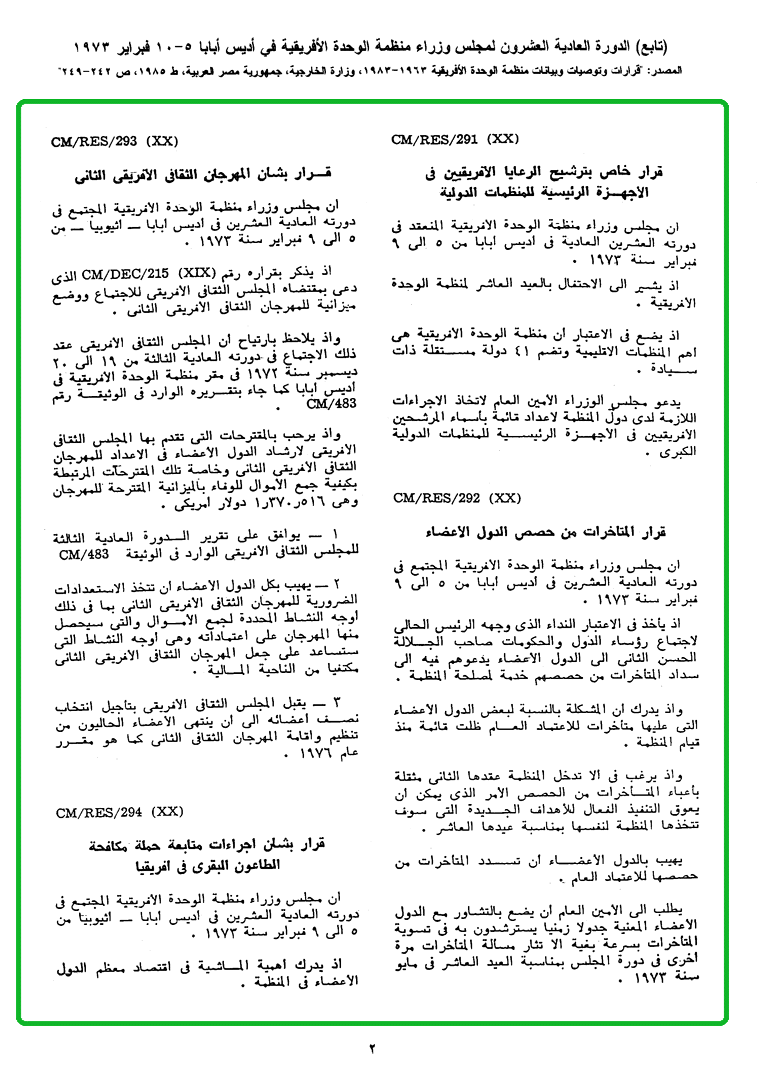 (تابع) الدورة العادية العشرون لمجلس وزراء منظمة الوحدة الأفريقية في أديس أبابا ٥-١٠ فبراير ١٩٧٣
المصدر: "قرارات وتوصيات وبيانات منظمة الوحدة الأفريقية ١٩٦٣-١٩٨٣، وزارة الخارجية، جمهورية مصر العربية، ط ١٩٨٥، ص ٢٤٢-٢٤٩"
CM/RES/291 (XX)
قرار خاص بترشيح الرعايا الأفريقيين فى
الأجهزة الرئيسية للمنظمات الدولية
ان مجلس وزراء منظمة الوحدة الأفريقية المنعقد فى
دورته العشرين العادية فى أديس أبابا من ٥ الى ٩
فبراير سنة ١٩٧٣ .
اذ يشير الى الاحتفال بالعيد العاشر لمنظمة الوحدة
الأفريقية .
اذ يضع فى الاعتبار أن منظمة الوحدة الأفريقية هى
أهم المنظمات الاقليمية وتضم ٤١ دولة مستقلة ذات
سيادة .
يدعو مجلس الوزراء الأمين العام لاتخاذ الاجراءات
اللازمة لدى دول المنظمة لاعداد قائمة بأسماء المرشحين
الأفريقيين فى الأجهزة الرئيسية للمنظمات الدولية
الكبرى .
CM/RES/292 (XX)
قرار المتأخرات من حصص الدول الأعضاء
ان مجلس وزراء منظمة الوحدة الأفريقية المجتمع فى
دورته العادية العشرين فى أديس أبابا من ٥ الى ٩
فبراير سنة ١٩٧٣ .
اذ يأخذ فى الاعتبار النداء الذى وجهه الرئيس الحالى
لاجتماع رؤساء الدول والحكومات صاحب الجلالة
الحسن الثانى الى الدول الأعضاء يدعوهم فيه الى
سداد المتأخرات من حصصهم خدمة لمصلحة المنظمة .
واذ يدرك أن المشكلة بالنسبة لبعض الدول الأعضاء
التى عليها متأخرات للاعتماد العام ظلت قائمة منذ
قيام المنظمة .
واذ يرغب فى ألا تدخل المنظمة عقدها الثانى مثقلة
بأعباء المتأخرات من الحصص الأمر الذى يمكن أن
يعوق التنفيذ الفعال للأهداف الجديدة التى سوف
تتخذها المنظمة لنفسها بمناسبة عيدها العاشر .
يهيب بالدول الأعضاء أن تسدد المتأخرات من
حصصها للاعتماد العام .
يطلب الى الأمين العام أن يضع بالتشاور مع الدول
الأعضاء المعنية جدولا زمنيا يسترشدون به فى تسوية
المتأخرات بسرعة بغية ألا تثار مسألة المتأخرات مرة
أخرى فى دورة المجلس بمناسبة العيد العاشر فى مايو
سنة ١٩٧٣ .
CM/RES/293 (XX)
قرار بشأن المهرجان الثقافى الأفريقى الثانى
ان مجلس وزراء منظمة الوحدة الأفريقية المجتمع فى
دورته العادية العشرين فى أديس أبابا — أثيوبيا — من
٥ الى ٩ فبراير سنة ١٩٧٣ .
اذ يذكر بقراره رقم CM/DEC/215 (XIX) الذى
دعى بمقتضاه المجلس الثقافى الأفريقى للاجتماع ووضع
ميزانية للمهرجان الثقافى الأفريقى الثانى .
واذ يلاحظ بارتياح أن المجلس الثقافى الأفريقى عقد
ذلك الاجتماع فى دورته العادية الثالثة من ١٩ الى ٢٠
ديسمبر سنة ١٩٧٢ فى مقر منظمة الوحدة الأفريقية فى
أديس أبابا كما جاء بتقريره الوارد فى الوثيقة رقم
CM/483 .
واذ يرحب بالمقترحات التى تقدم بها المجلس الثقافى
الأفريقى لارشاد الدول الأعضاء فى الاعداد للمهرجان
الثقافى الأفريقى الثانى وخاصة تلك المقترحات المرتبطة
بكيفية جمع الأموال للوفاء بالميزانية المقترحة للمهرجان
وهى ١٫٣٧٠٫٥١٦ دولار أمريكى .
١ — يوافق على تقرير الدورة العادية الثالثة
للمجلس الثقافى الأفريقى الوارد فى الوثيقة CM/483
٢ — يهيب بكل الدول الأعضاء أن تتخذ الاستعدادات
الضرورية للمهرجان الثقافى الأفريقى الثانى بما فى ذلك
أوجه النشاط المحددة لجمع الأموال والتى سيحصل
منها المهرجان على اعتماداته وهى أوجه النشاط التى
ستساعد على جعل المهرجان الثقافى الأفريقى الثانى
مكتفيا من الناحية المالية .
٣ — يقبل المجلس الثقافى الأفريقى بتأجيل انتخاب
نصف أعضائه الى أن ينتهى الأعضاء الحاليون من
تنظيم واقامة المهرجان الثقافى الثانى كما هو مقرر
عام ١٩٧٦ .
CM/RES/294 (XX)
قرار بشأن اجراءات متابعة حملة مكافحة
الطاعون البقرى فى أفريقيا
ان مجلس وزراء منظمة الوحدة الأفريقية المجتمع فى
دورته العادية العشرين فى أديس أبابا — أثيوبيا من
٥ الى ٩ فبراير سنة ١٩٧٣ .
اذ يدرك أهمية الماشية فى اقتصاد معظم الدول
الأعضاء فى المنظمة .
٢